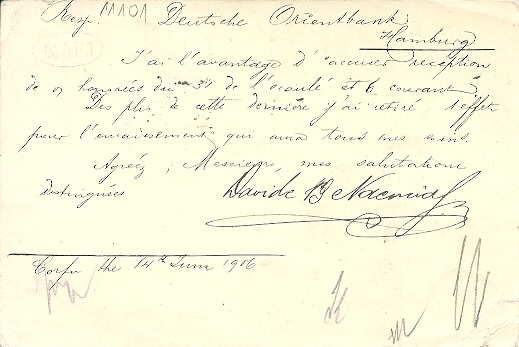 Rey. 11101 Deutsche Orientbank,
Hamburg
J'ai l'avantage d'accuser réception
de vs honorées du 31 de l'écoulé et 6 courant.
Des plis de cette dernière j'ai retiré 1 effet
pour l'encaissement qui aura tous mes soins.
Agréez, Messieurs, mes salutations
distinguées
Davide B Nacmias
Corfu the 14th Juin 1916